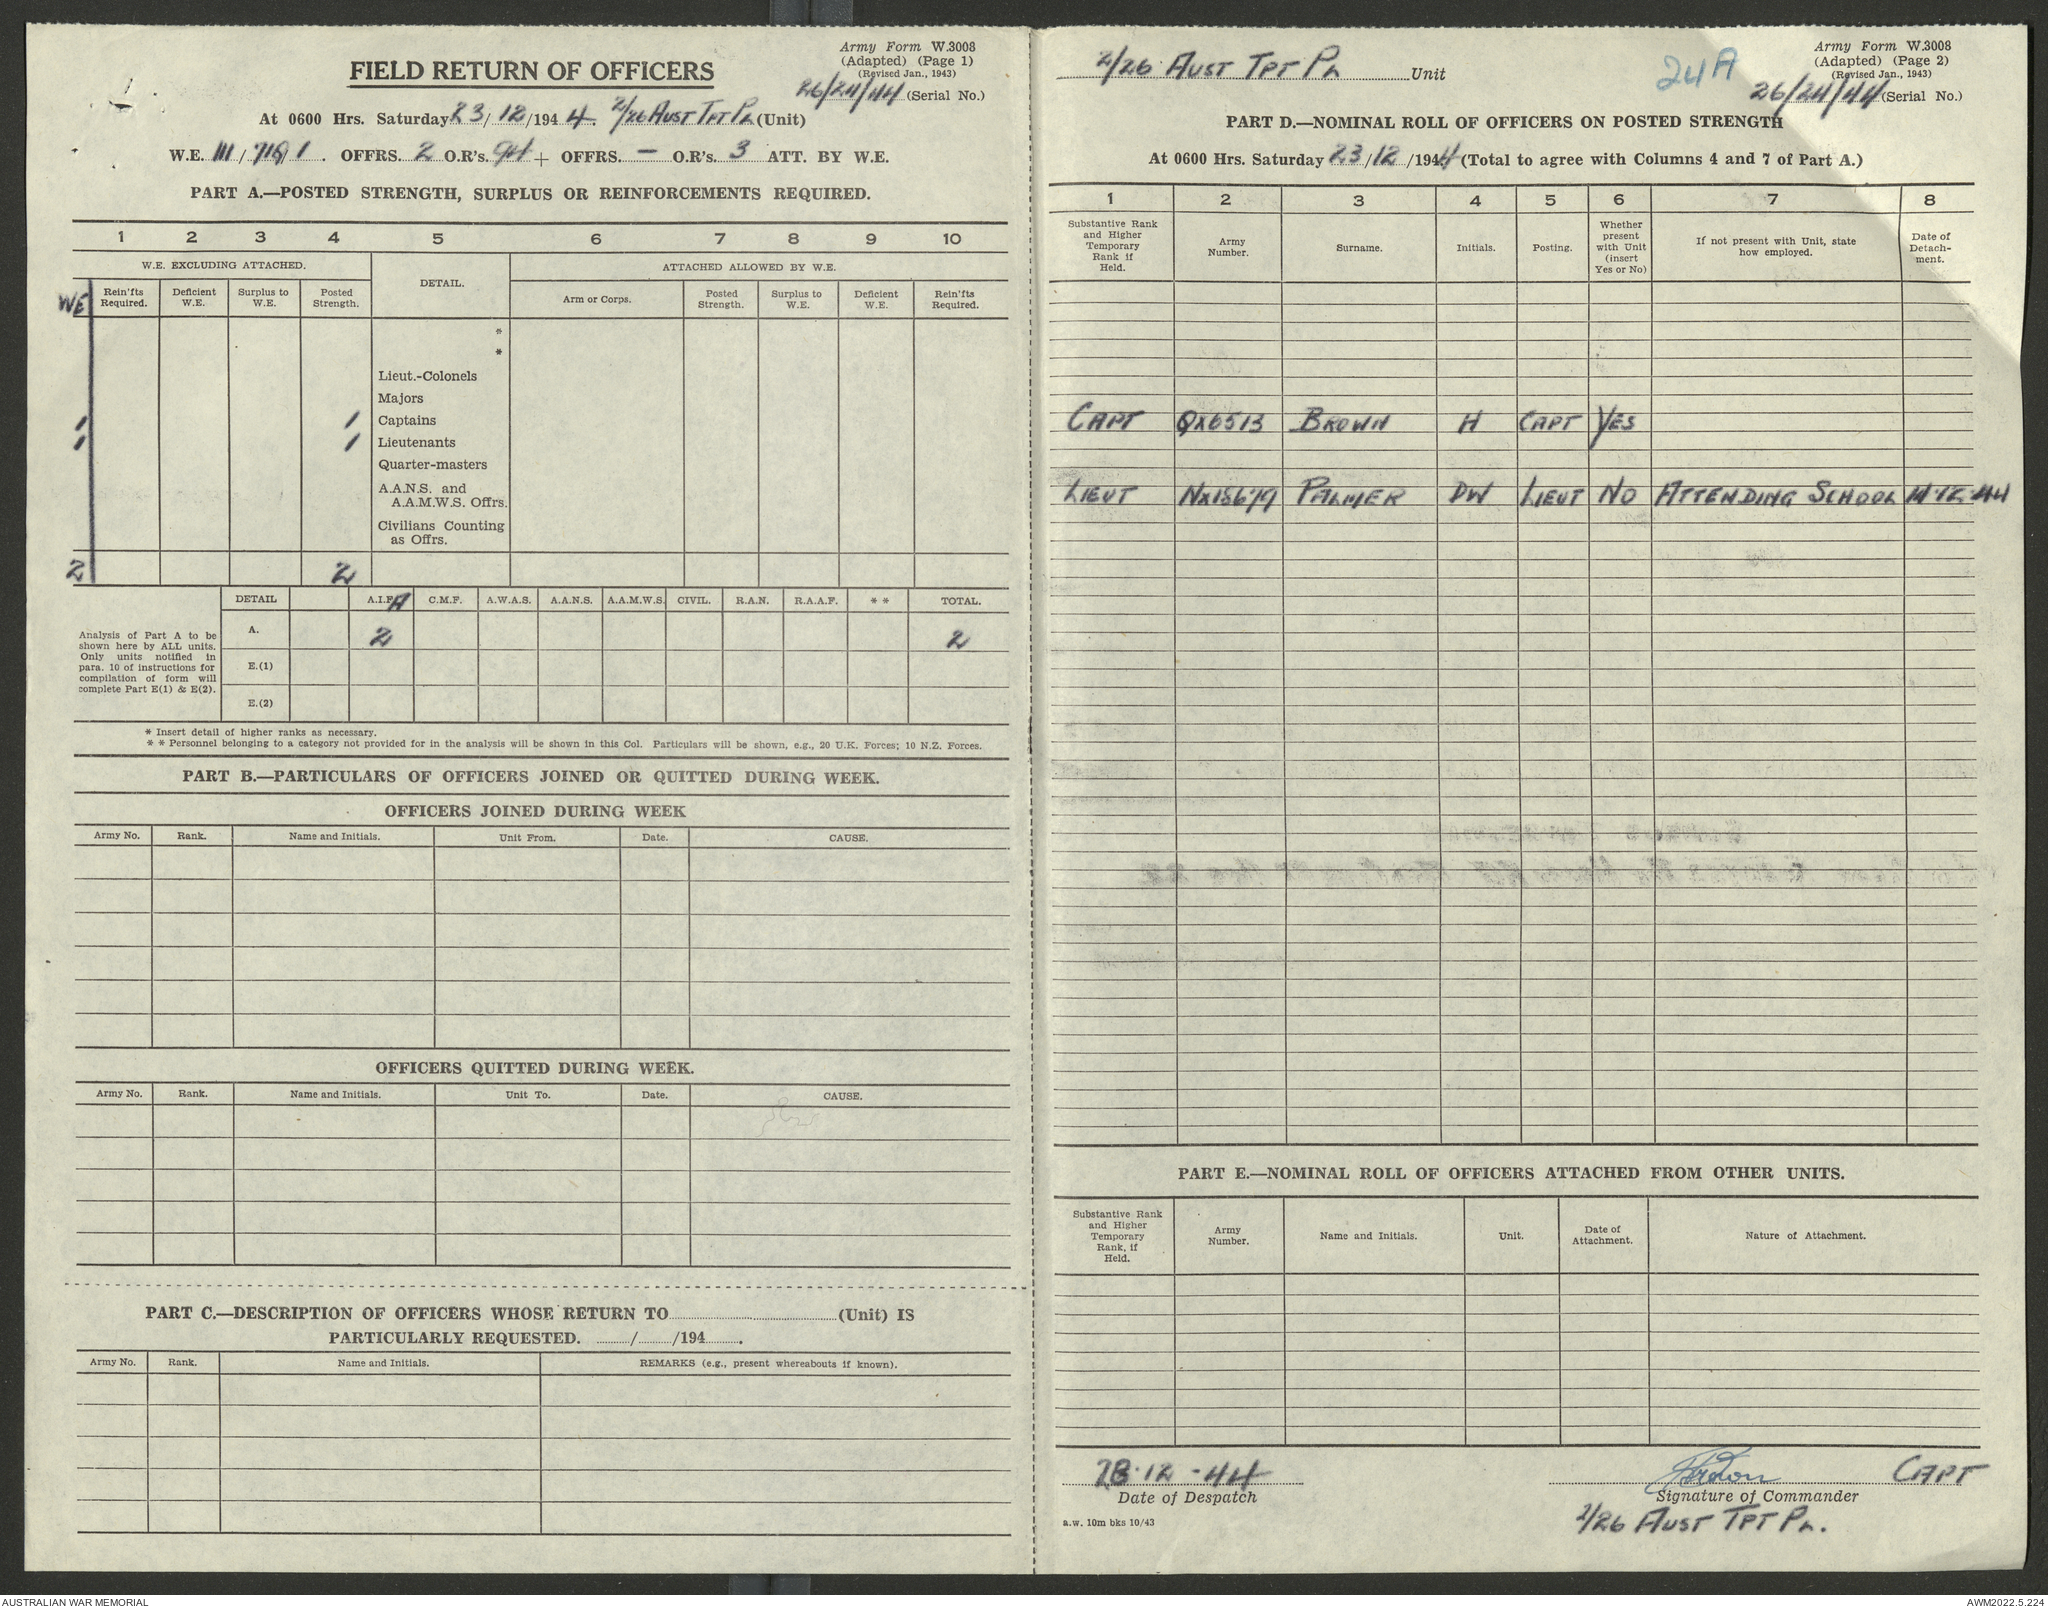 Army Form W.3008
(Adapted) (Page 1)
(Revised Jan., 1943)
26/24/44 (Serial No.)
FIELD RETURN OF OFFICERS
At 0600 Hrs. Saturday 23/12/1944. 2/26 AUST TPT PL (Unit)
W.E. III/ 1. OFFRS. 2 O.R's. 94 + OFFRS. — O.R's. 3 ATT. BY W.E.
PART A.—POSTED STRENGTH, SURPLUS OR REINFORCEMENTS REQUIRED.
1 2 3 4 5 6 7 8 9 10
W.E. EXCLUDING ATTACHED. DETAIL. ATTACHED ALLOWED BY W.E.
WE Rein'fts Required. Deficient W.E. Surplus to W.E. Posted Strength. Arm or Corps. Posted Strength. Surplus to W.E. Deficient W.E. Rein'fts Required.
*
*
Lieut.-Colonels
Majors
1 1 Captains
1 1 Lieutenants
Quarter-masters
A.A.N.S. and
A.A.M.W.S. Offrs.
Civilians Counting
as Offrs.
2 2
DETAIL A.I.F. A C.M.F. A.W.A.S. A.A.N.S. A.A.M.W.S. CIVIL. R.A.N. R.A.A.F. * * TOTAL.
Analysis of Part A to be
shown here by ALL units.
Only units notified in
para. 10 of instructions for
compilation of form will
complete Part E(1) & E(2).
A. 2 2
E.(1)
E.(2)
* Insert detail of higher ranks as necessary.
* * Personnel belonging to a category not provided for in the analysis will be shown in this Col. Particulars will be shown, e.g., 20 U.K. Forces; 10 N.Z. Forces.
PART B.—PARTICULARS OF OFFICERS JOINED OR QUITTED DURING WEEK.
OFFICERS JOINED DURING WEEK
Army No. Rank. Name and Initials. Unit From. Date. CAUSE.
OFFICERS QUITTED DURING WEEK.
Army No. Rank. Name and Initials. Unit To. Date. CAUSE.
PART C.—DESCRIPTION OF OFFICERS WHOSE RETURN TO (Unit) IS
PARTICULARLY REQUESTED. / /194 .
Army No. Rank. Name and Initials. REMARKS (e.g., present whereabouts if known).
2/26 AUST TPT PL Unit
24A
Army Form W.3008
(Adapted) (Page 2)
(Revised Jan., 1943)
26/24/44 (Serial No.)
PART D.—NOMINAL ROLL OF OFFICERS ON POSTED STRENGTH
At 0600 Hrs. Saturday 23/12/1944 (Total to agree with Columns 4 and 7 of Part A.)
1 2 3 4 5 6 7 8
Substantive Rank and Higher Temporary Rank if Held. Army Number. Surname. Initials. Posting. Whether present with Unit (insert Yes or No) If not present with Unit, state how employed. Date of Detach-ment.
CAPT QX6513 BROWN H CAPT YES
LIEUT NX18679 PALMER DW LIEUT NO ATTENDING SCHOOL 14·12·44
PART E.—NOMINAL ROLL OF OFFICERS ATTACHED FROM OTHER UNITS.
Substantive Rank and Higher Temporary Rank, if Held. Army Number. Name and Initials. Unit. Date of Attachment. Nature of Attachment.
23·12·44 HBrown CAPT
Date of Despatch Signature of Commander
a.w. 10m bks 10/43
2/26 AUST TPT PL.
AUSTRALIAN WAR MEMORIAL AWM2022.5.224